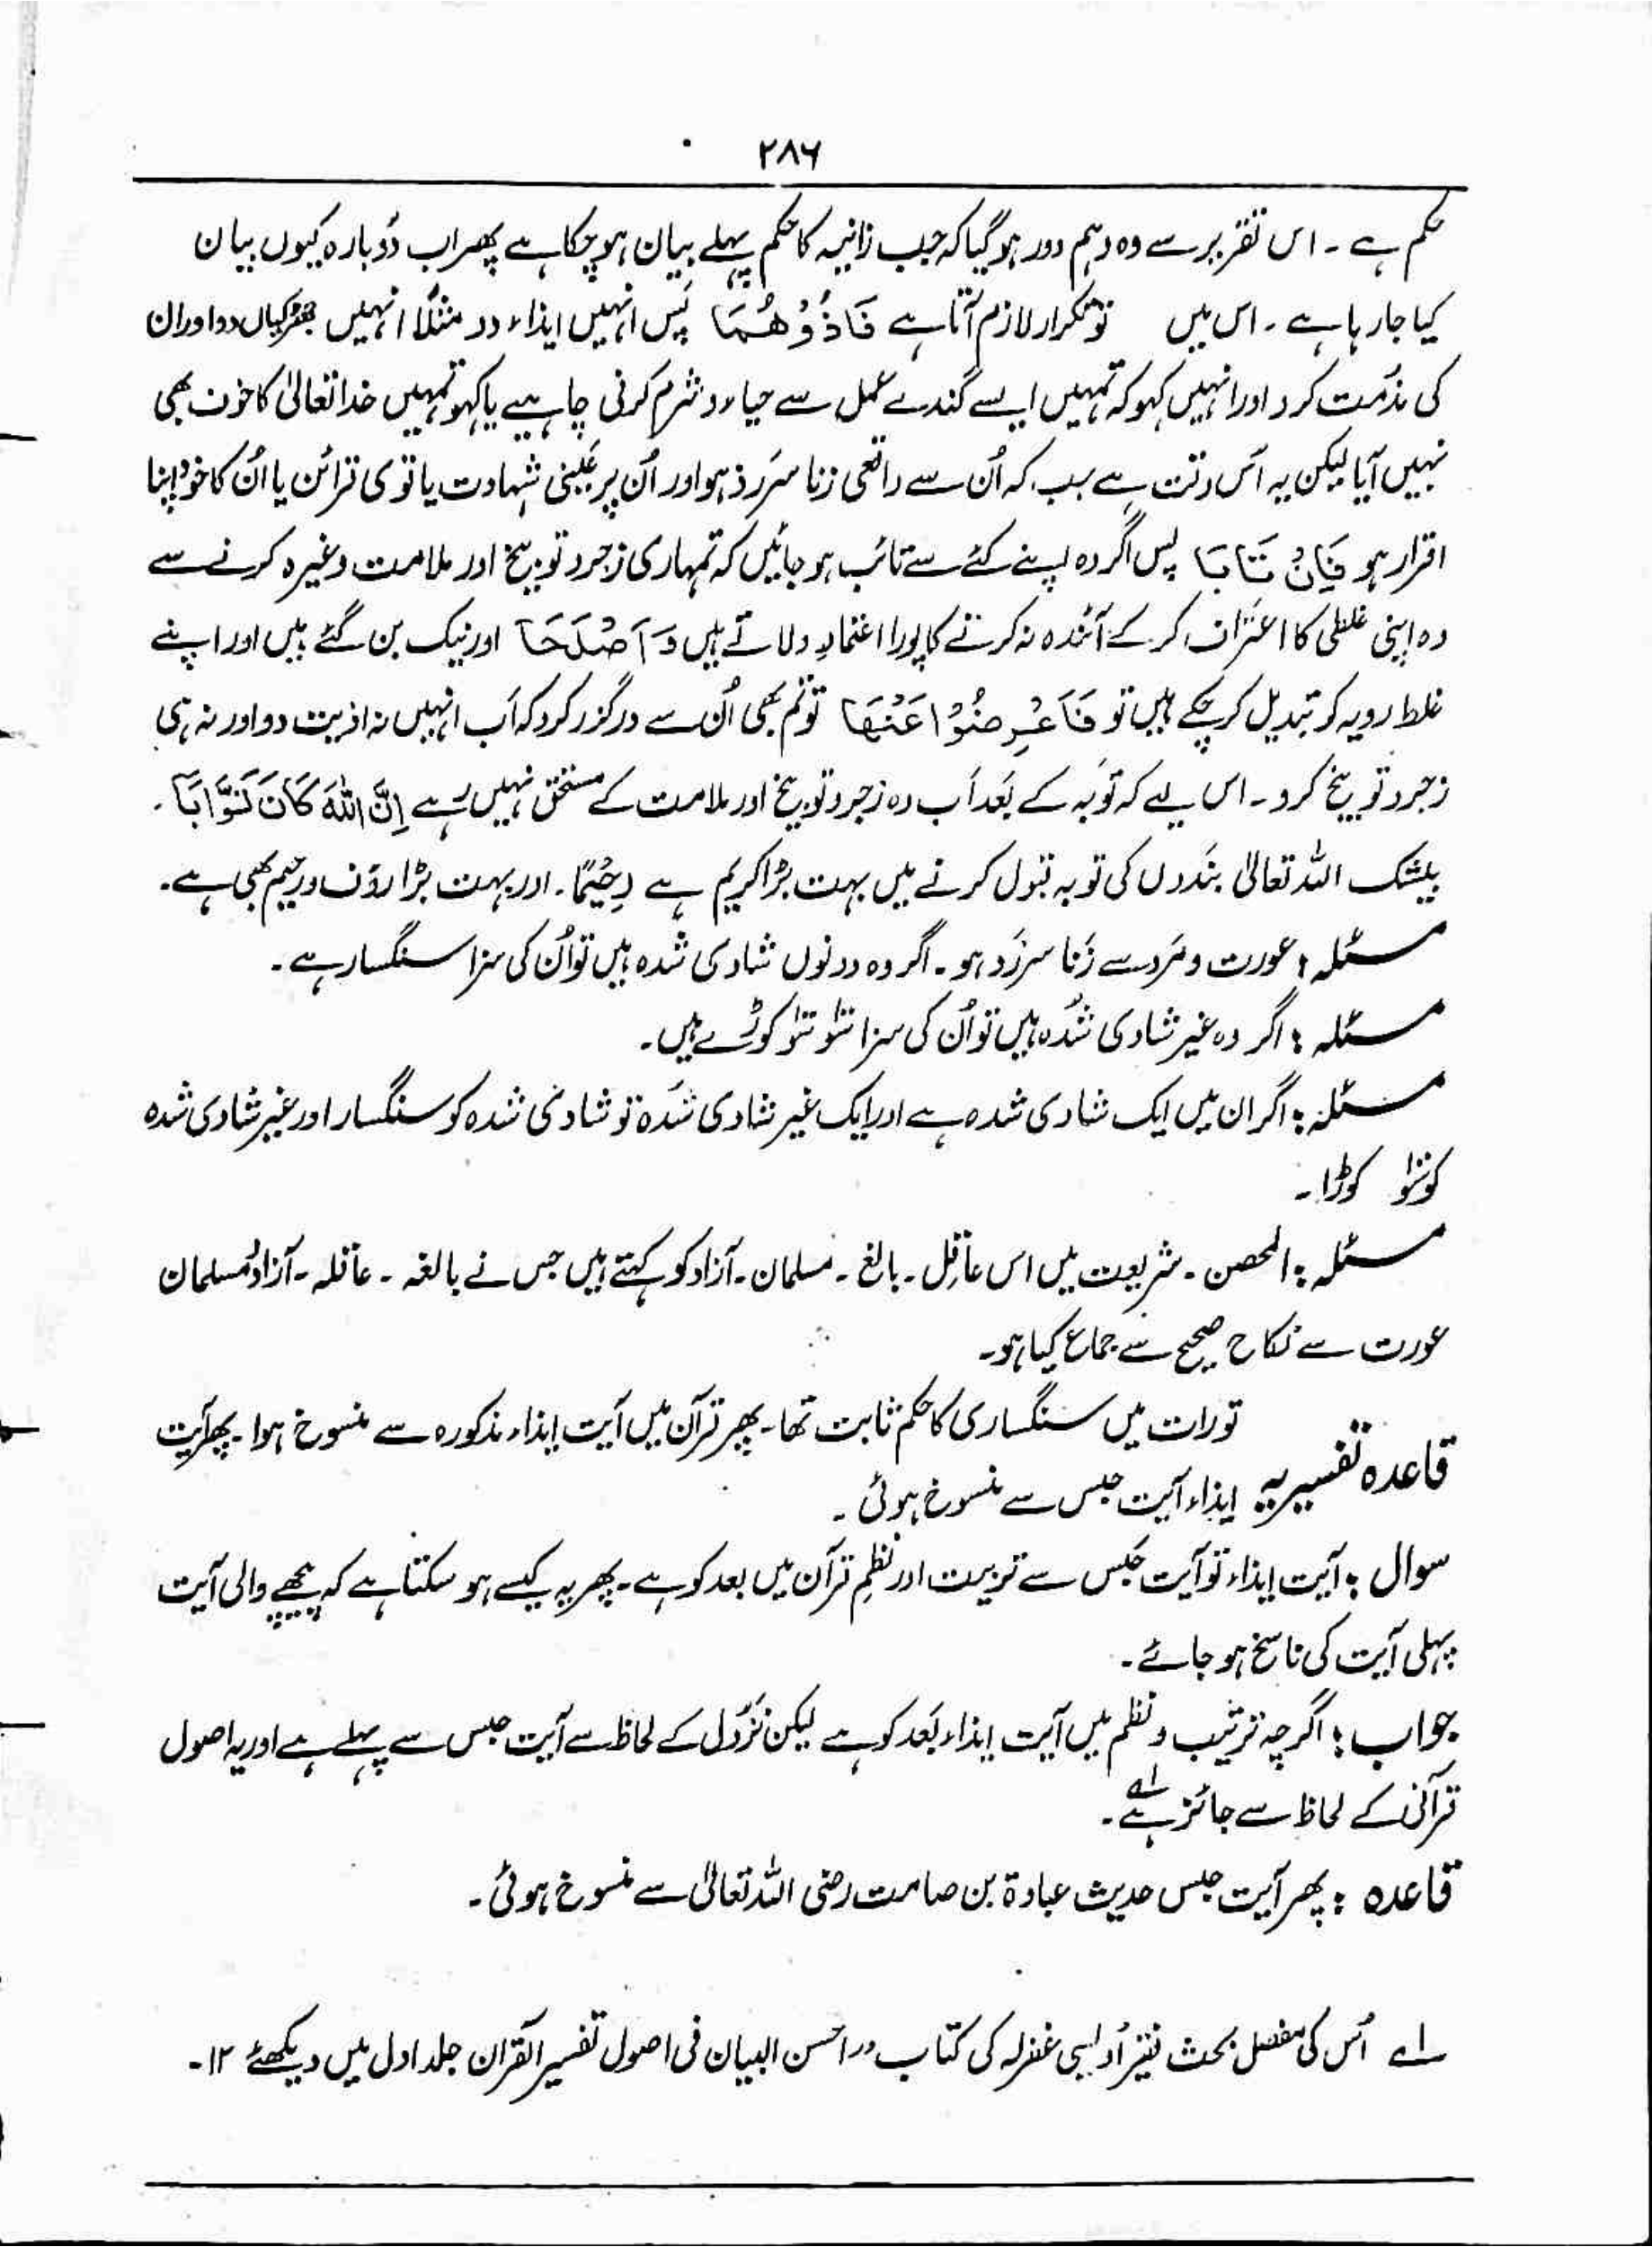 ۲۸۶
حکم ہے ۔ اس تقریر سے وہ وہم دور ہو گیا کہ جب زانیہ کا حکم پہلے بیان ہو چکا ہے پھر اب دوبارہ کیوں بیان
کیا جا رہا ہے ۔ اس میں تو تکرار لازم آتا ہے فَاٰذُوْهُمَا پس انہیں ایذاء دو مثلاً انہیں جھڑکیاں دو اور ان
کی مذمت کرو اور انہیں کہو کہ تمہیں ایسے گندے عمل سے حیاء و شرم کرنی چاہیے یا کہو تمہیں خدا تعالیٰ کا خوف بھی
نہیں آیا لیکن یہ اُس وقت ہے جب کہ اُن سے واقعی زنا سرزد ہو اور اُن پر عینی شہادت یا قوی قرائن یا اُن کا خود اپنا
اقرار ہو فَاِنْ تَابَا پس اگر وہ اپنے کئے سے تائب ہو جائیں کہ تمہاری زجر و توبیخ اور ملامت وغیرہ کرنے سے
وہ اپنی غلطی کا اعتراف کر کے آئندہ نہ کرنے کا پورا اعتماد دلاتے ہیں وَ اَصْلَحَا اور نیک بن گئے ہیں اور اپنے
غلط رویہ کو تبدیل کر چکے ہیں تو فَاَعْرِضُوْا عَنْهَا تو تم بھی اُن سے درگزر کرو کہ اَب انہیں نہ اذیت دو اور نہ ہی
زجر و توبیخ کرو ۔ اس لیے کہ توبہ کے بعد اَب وہ زجر و توبیخ اور ملامت کے مستحق نہیں رہے اِنَّ اللّٰهَ كَانَ تَوَّابًا ۔
بیشک اللہ تعالیٰ بندوں کی توبہ قبول کرنے میں بہت بڑا کریم ہے رَحِيْمًا ۔ اور بہت بڑا رؤف و رحیم بھی ہے ۔
مسئلہ : عورت و مرد سے زنا سرزد ہو ۔ اگر وہ دونوں شادی شدہ ہیں تو اُن کی سزا سنگسار ہے ۔
مسئلہ : اگر وہ غیر شادی شدہ ہیں تو اُن کی سزا سَو سَو کوڑے ہیں ۔
مسئلہ : اگر ان میں ایک شادی شدہ ہے اور ایک غیر شادی شدہ تو شادی شدہ کو سنگسار اور غیر شادی شدہ
کو سَو کوڑا ۔
مسئلہ : المحصن ۔ شریعت میں اس عاقل ۔ بالغ ۔ مسلمان ۔ آزاد کو کہتے ہیں جس نے بالغہ ۔ عاقلہ ۔ آزاد مسلمان
عورت سے نکاح صحیح سے جماع کیا ہو ۔
قاعدہ تفسیریہ تورات میں سنگساری کا حکم ثابت تھا ۔ پھر قرآن میں آیت ایذاء مذکورہ سے منسوخ ہوا ۔ پھر آیت
ایذاء آیت حبس سے منسوخ ہوئی ۔
سوال : آیت ایذاء تو آیت حبس سے ترتیب اور نظمِ قرآن میں بعد کو ہے ۔ پھر یہ کیسے ہو سکتا ہے کہ پیچھے والی آیت
پہلی آیت کی ناسخ ہو جائے ۔
جواب : اگرچہ ترتیب و نظم میں آیت ایذاء بعد کو ہے لیکن نزول کے لحاظ سے آیت حبس سے پہلے ہے اور یہ اصول
قرآنی کے لحاظ سے جائز ہے ۱ے ۔
قاعدہ : پھر آیت حبس حدیث عبادۃ بن صامت رضی اللہ تعالیٰ سے منسوخ ہوئی ۔
۱ے اُس کی مفصل بحث فقیر اُویسی غفرلہ کی کتاب "احسن البیان فی اصول تفسیر القرآن جلد اول میں دیکھئے ۱۲ ۔